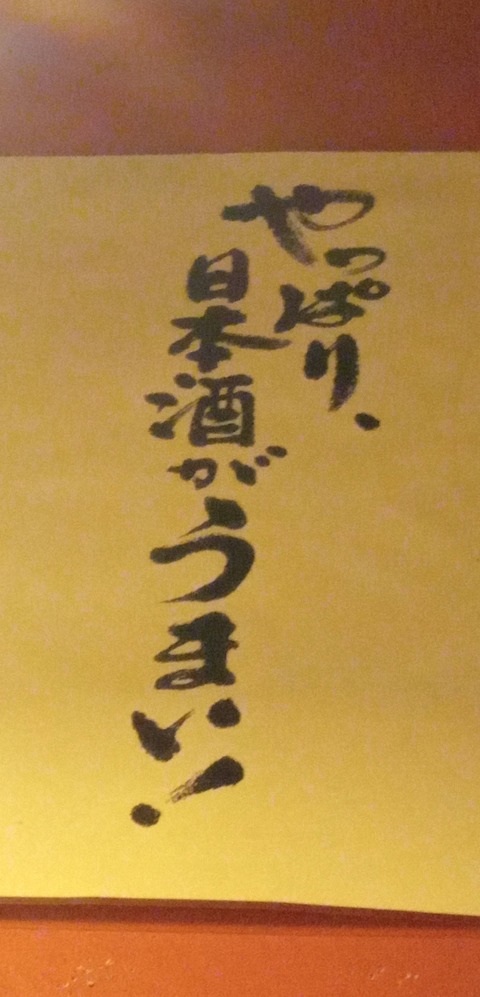 やっぱり、
日本酒がうまい!